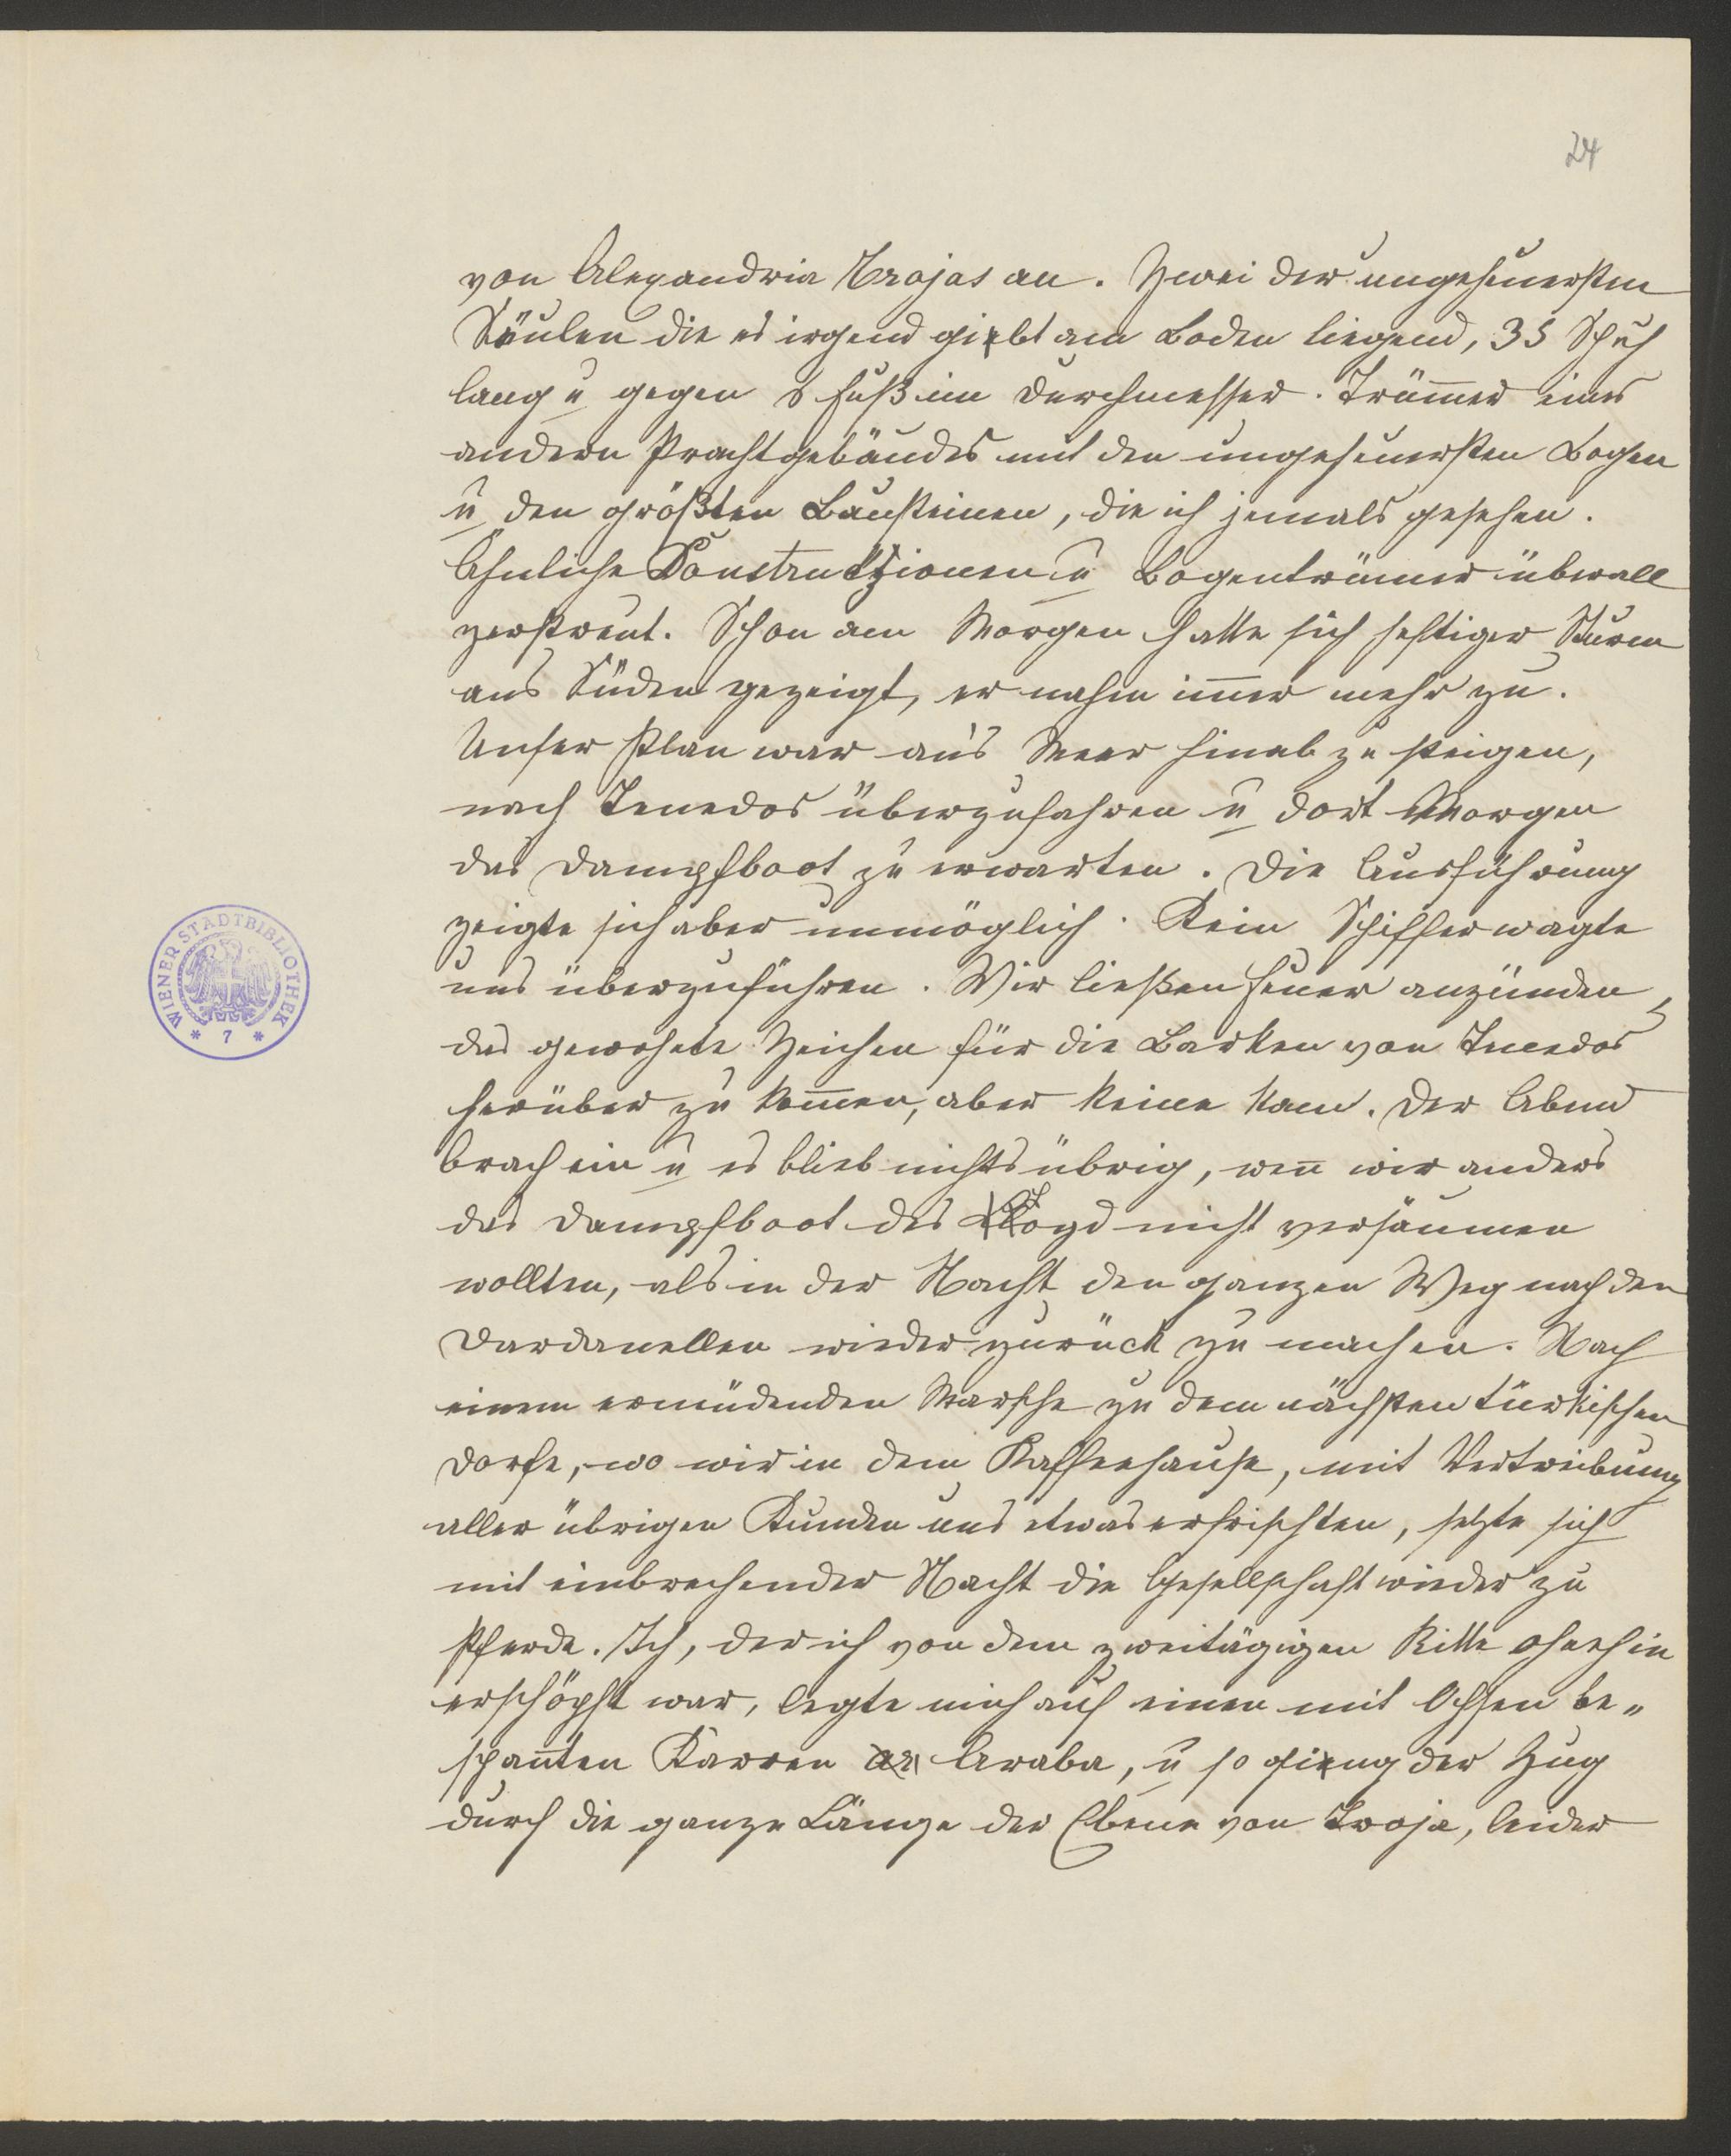 24
von Alexandria Trojas an. Zwei der ungeheuersten
Säulen die es irgend giebt am Boden liegend, 35 Schuh
lang u gegen 5 Fuß im Durchmesser. Trüm̅er eines
andern Prachtgebäudes mit den ungeheuersten Bogen
u den größten Bausteinen, die ich jemals gesehen.
Ähnliche Construkzionen u Bogentrümer überall
zerstreut. Schon am Morgen hatte sich heftiger Sturm
aus Süden gezeigt, er nahm im̅er mehr zu.
Unser Plan war ans Meer hinab zu steigen,
nach Tenedos überzufahren u dort Morgen
das Dampfboot zu erwarten. Die Ausführung
zeigte sich aber unmöglich. Kein Schiffer wagte
uns überzuführen. Wir ließen Feuer anzünden,
das gewohnte Zeichen für die Barken von Tenedos
herüber zu kom̅en, aber keine kam. Der Abend
brach ein u es blieb nichts übrig, wen̅ wir anders
das Dampfboot des Lloyd nicht versäumen
wollten, als in der Nacht den ganzen Weg nach den
Dardanellen wieder zurück zu machen. Nach
einem ermüdenden Marsche zu dem nächsten türkischen
Dorfe, wo wir in dem Kaffeehause, mit Vertreibung
aller übrigen Kunden uns etwas erfrischten, setzte sich
mit einbrechender Nacht die Gesellschaft wieder zu
Pferde. Ich, der ich von dem zweitägigen Ritte ohnehin
erschöpft war, legte mich auf einen mit Ochsen be„
span̅ten Karren Araba, u so gieng der Zug
durch die ganze Länge der Ebene von Troja, leider
WIENER STADTBIBLIOTHEK
* 7 *